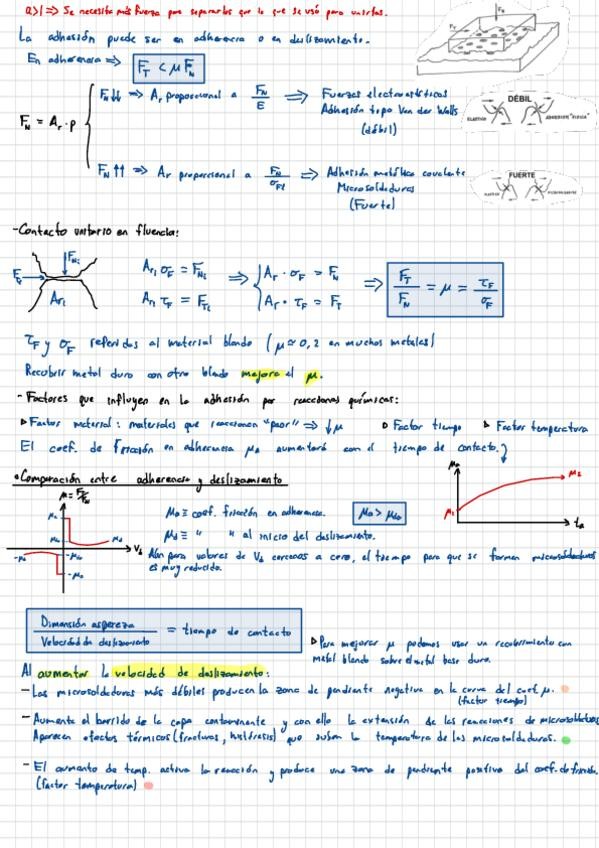 a>1 => Se necesita más fuerza para separarlos que la que se usó para unirlos.
La adhesión puede ser en adherencia o en deslizamiento.
En adherencia => F_T < μ F_N
F_N = A_r · p
F_N ↓↓ => A_r proporcional a F_N/E => Fuerzas electrostáticas
Adhesión tipo Van der Walls
(débil)
F_N ↑↑ => A_r proporcional a F_N/σ_Fl => Adhesión metálica covalente
Microsoldaduras
(Fuerte)
DÉBIL
FUERTE
-Contacto unitario en fluencia:
A_ri σ_F = F_Ni => A_r · σ_F = F_N => F_T/F_N = μ = τ_F/σ_F
A_ri τ_F = F_Ti A_r · τ_F = F_T
F_Ni
A_ri
τ_F y σ_F referidos al material blando (μ ≃ 0,2 en muchos metales)
Recubrir metal duro con otro blando mejora el μ.
- Factores que influyen en la adhesión por reacciones químicas:
▷ Factor material: materiales que reaccionen "peor" => ↓μ ▷ Factor tiempo ▷ Factor temperatura
El coef. de fricción en adherencia μ_a aumentará con el tiempo de contacto.
• Comparación entre adherencia y deslizamiento
V_d
μ_a ≡ coef. fricción en adherencia. μ_a > μ_do
μ_d ≡ " " al inicio del deslizamiento.
Aún para valores de V_d cercanos a cero, el tiempo para que se formen microsoldaduras
es muy reducido.
μ_1
μ_2
t_a
Dimensión aspereza / Velocidad de deslizamiento = tiempo de contacto
▷ Para mejorar μ podemos usar un recubrimiento con
metal blando sobre el metal base duro.
Al aumentar la velocidad de deslizamiento:
- Las microsoldaduras más débiles producen la zona de pendiente negativa en la curva del coef μ.
(factor tiempo)
- Aumenta el barrido de la capa contaminante y con ello la extensión de las reacciones de microsoldadura
Aparecen efectos térmicos (fracturas, histéresis) que suben la temperatura de las microsoldaduras.
- El aumento de temp. activa la reacción y produce una zona de pendiente positiva del coef. de fricción.
(factor temperatura)